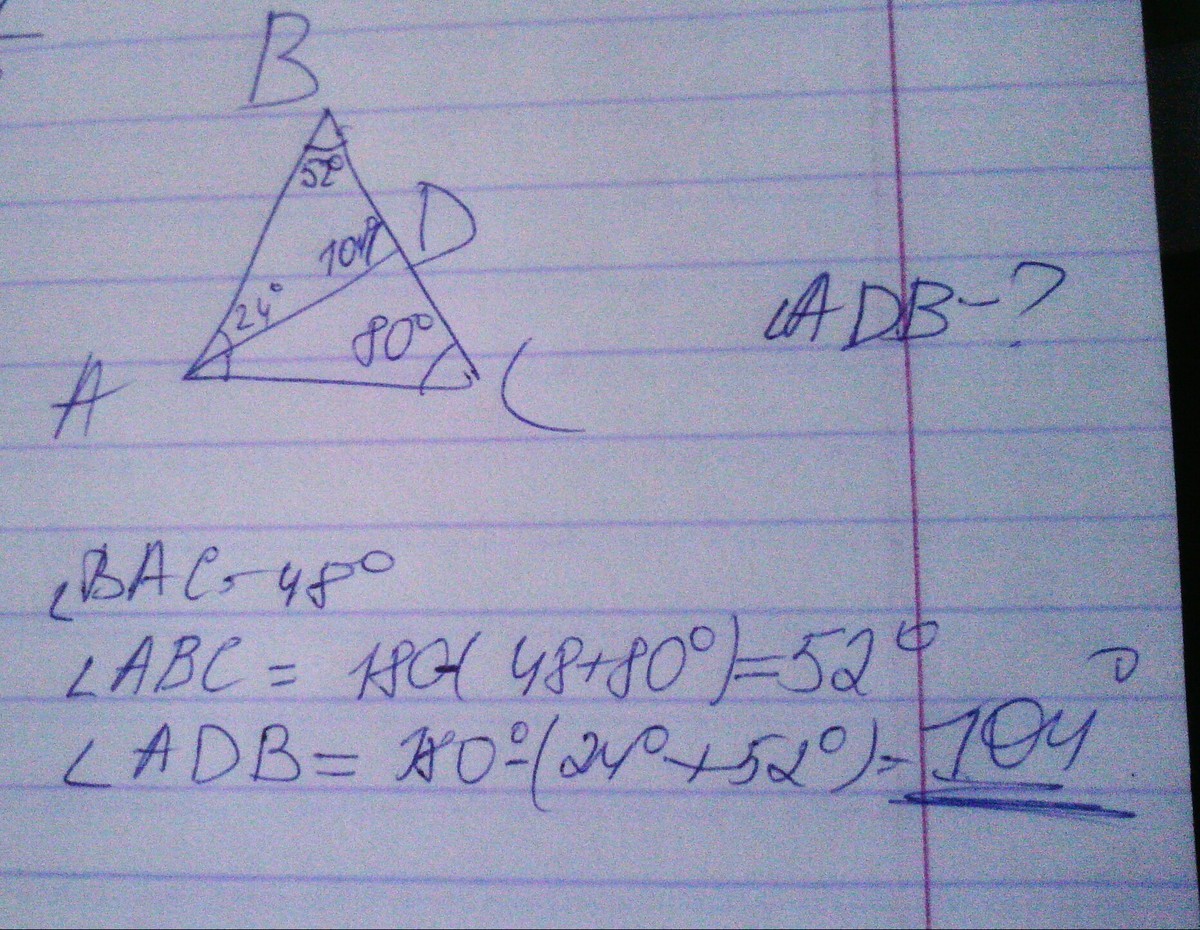 B
52°
D
104°
24°
80°
∠ADB-?
A
C
∠BAC=48°
∠ABC = 180-(48+80°)=52°
∠ADB= 180°-(24°+52°)=104°